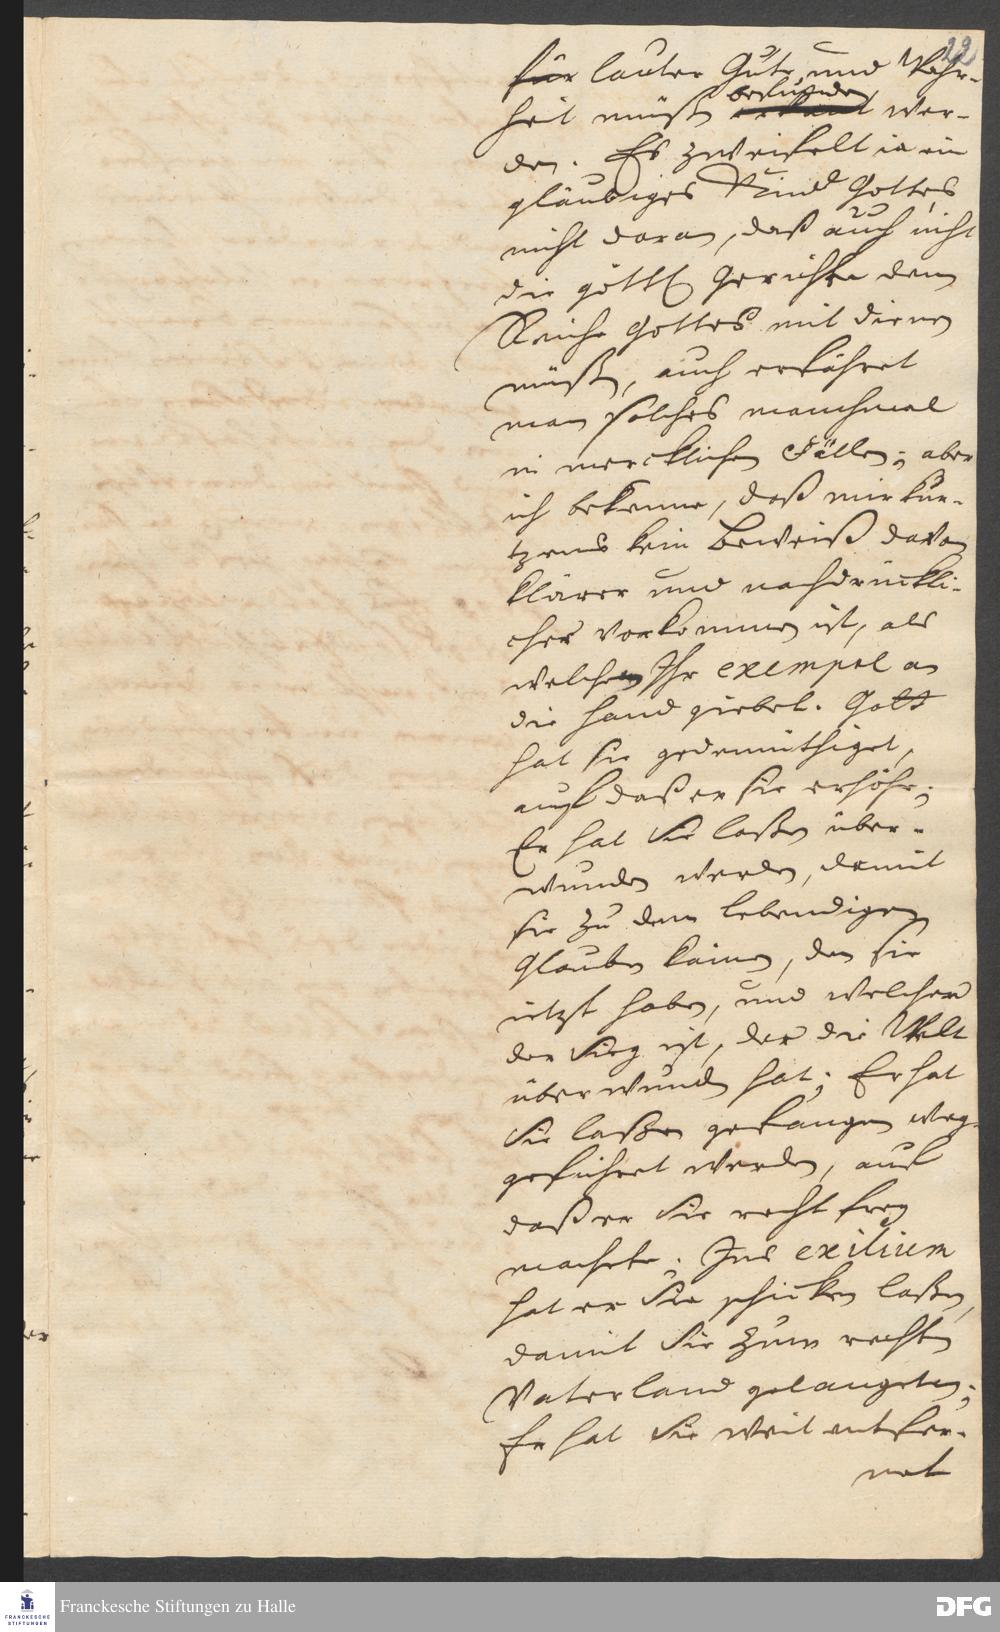 22
für lauter Güte und Wahr-
heit müße befunden erkant wer-
den. Es zweifelt ia ein
gläubiges Kind Gottes
nicht daran, daß auch nicht
die göttl. Gerichte dem
Reiche Gottes mit dienen
müßen, auch erfähret
man solches manchmal
in mercklichen Fällen; aber
ich bekenne, daß mir kür-
tzens kein Beweiß davon
klärer und nachdrückli-
cher vorkommen ist, als
welchen Ihr exempel an
die hand giebet. Gott
hat sie gedemüthiget,
auf daß er sie erhöhe;
Er hat Sie laßen über-
wunden werden, damit
sie zu dem lebendigen
Glauben kämen, den sie
ietzt haben, und welcher
der Sieg ist, der die Welt
überwunden hat; Er hat
Sie laßen gefangen weg-
geführet werden, auf
daß er Sie recht frey
machete; Ins exilium
hat er Sie schicken laßen,
damit Sie zum rechten
Vaterland gelangeten;
Er hat Sie weit entfer-
net
Franckesche Stiftungen zu Halle
FRANCKESCHE
STIFTUNGEN
DFG